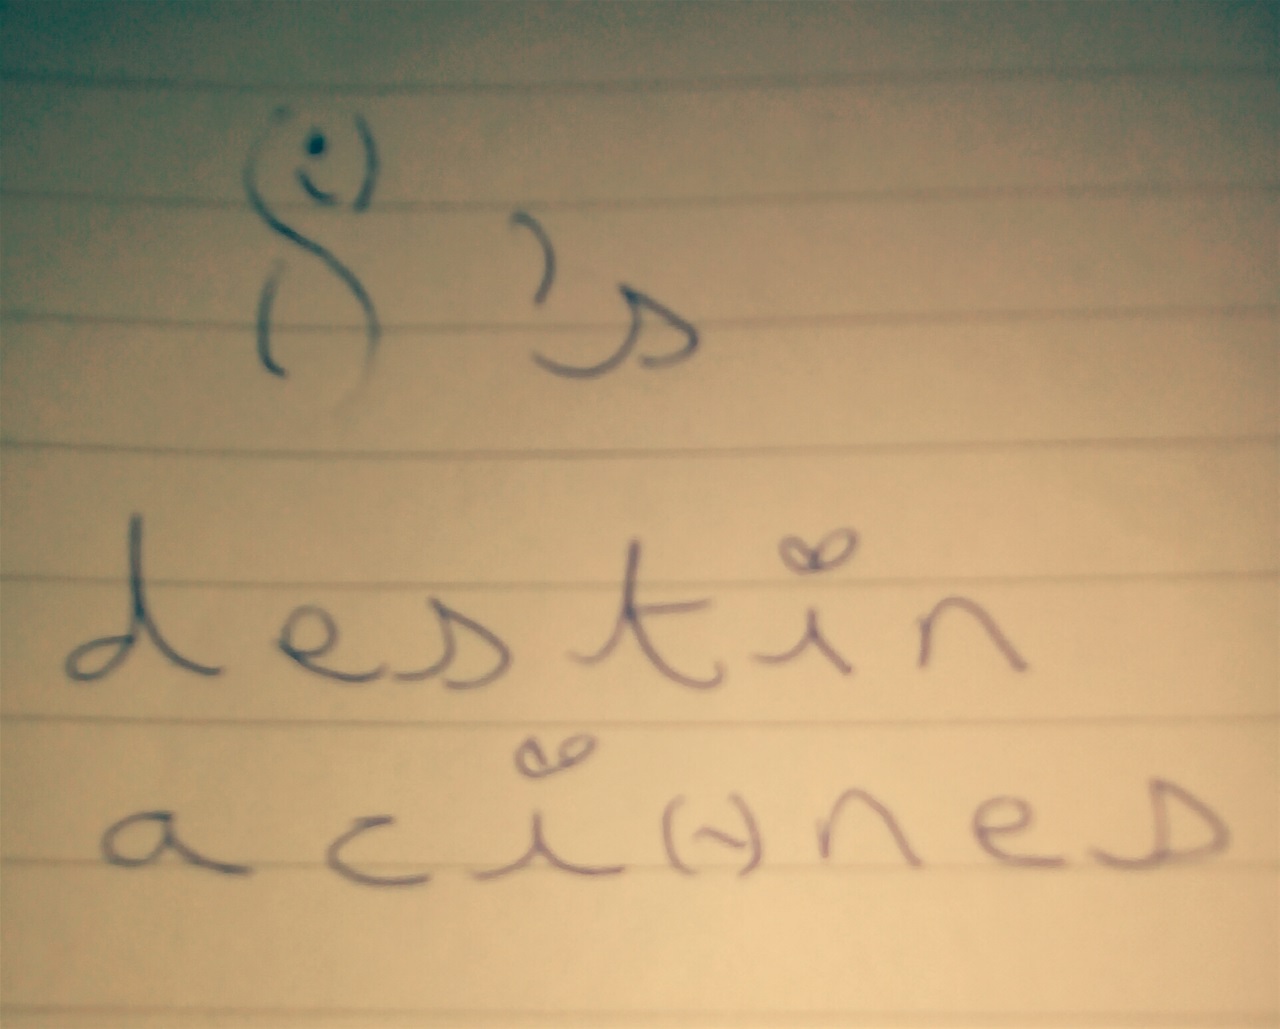 8's
destin
aciones